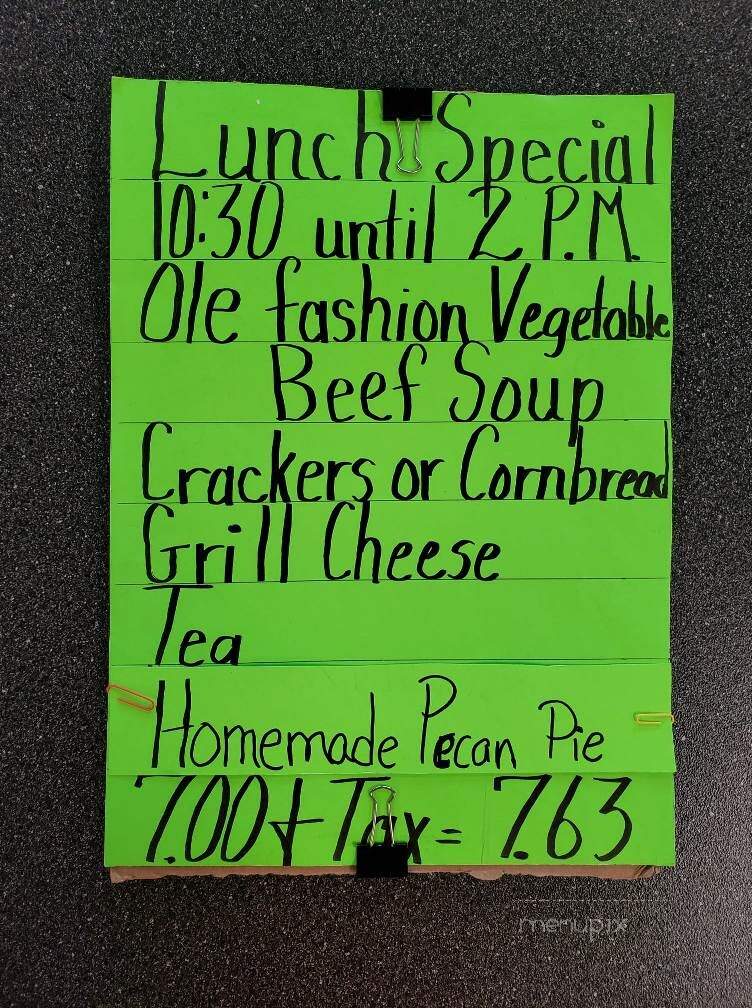 Lunch Special
10:30 until 2 P.M.
Ole fashion Vegetable
Beef Soup
Crackers or Cornbread
Grill Cheese
Tea
Homemade Pecan Pie
7.00 + Tax = 7.63
menupix